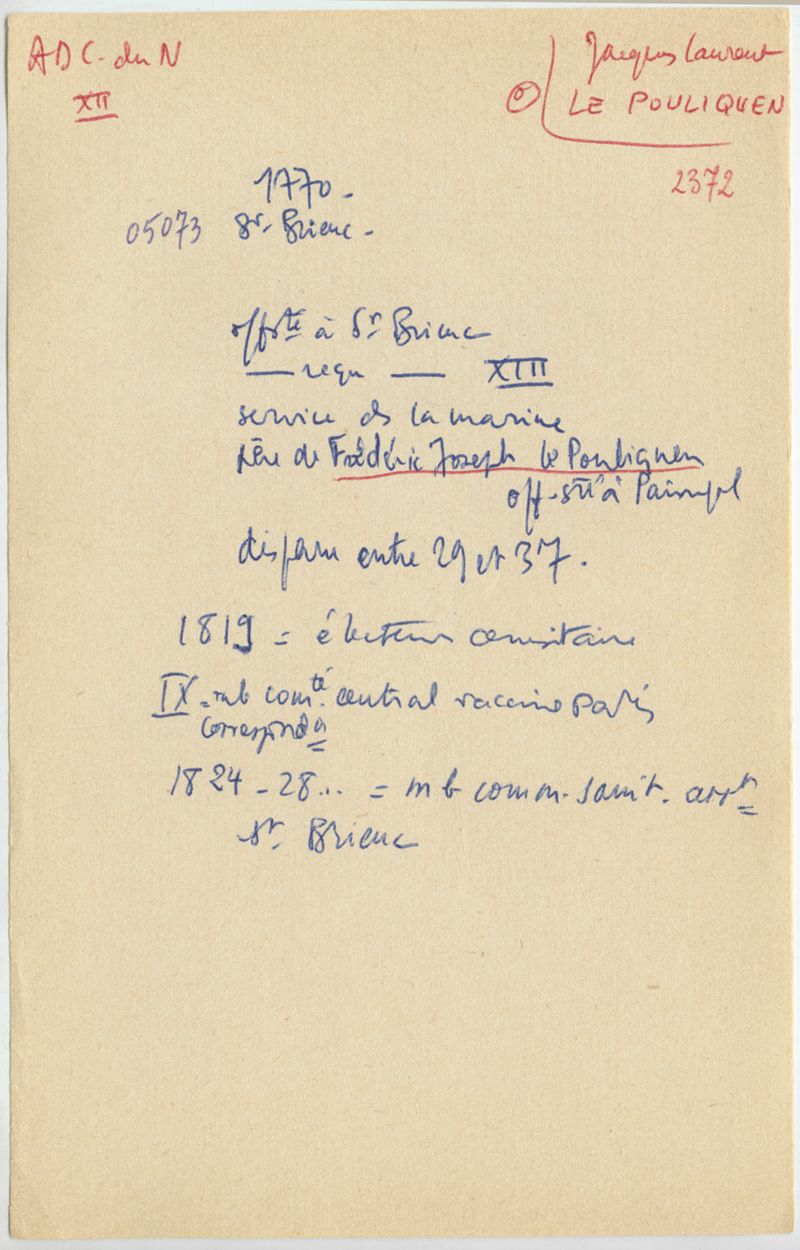 ADC. du N
XII
Jacques Laurent
LE POULIQUEN
2372
1770.
05073 St. Brieuc.
offté à St Brieuc
— reçu — XIII
service ds la marine
père de Frédéric Joseph le Pouliquen
off. sté à Paimpol
disparu entre 29 et 37.
1819 = électeur censitaire
IX = mb comté central vaccine Paris
correspondt
1824-28... = mb comm. sanit. arrt
St. Brieuc